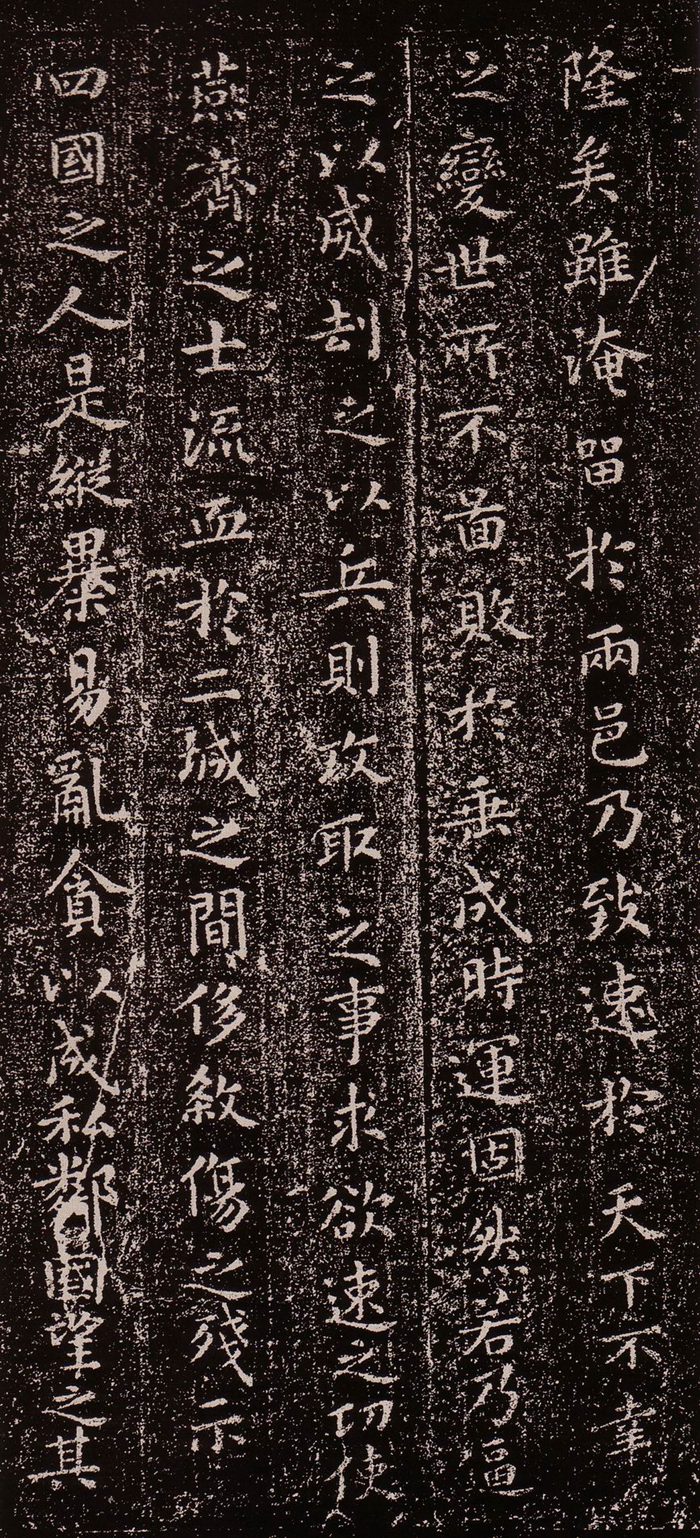 隆矣雖淹留於兩邑乃致速於天下不幸
之變世所不圖敗於垂成時運固然若乃逼
之以威刦之以兵則攻取之事求欲速之功使
燕齊之士流血於二城之間侈煞傷之殘示
四國之人是縱暴易亂貪以成私鄰國望之其